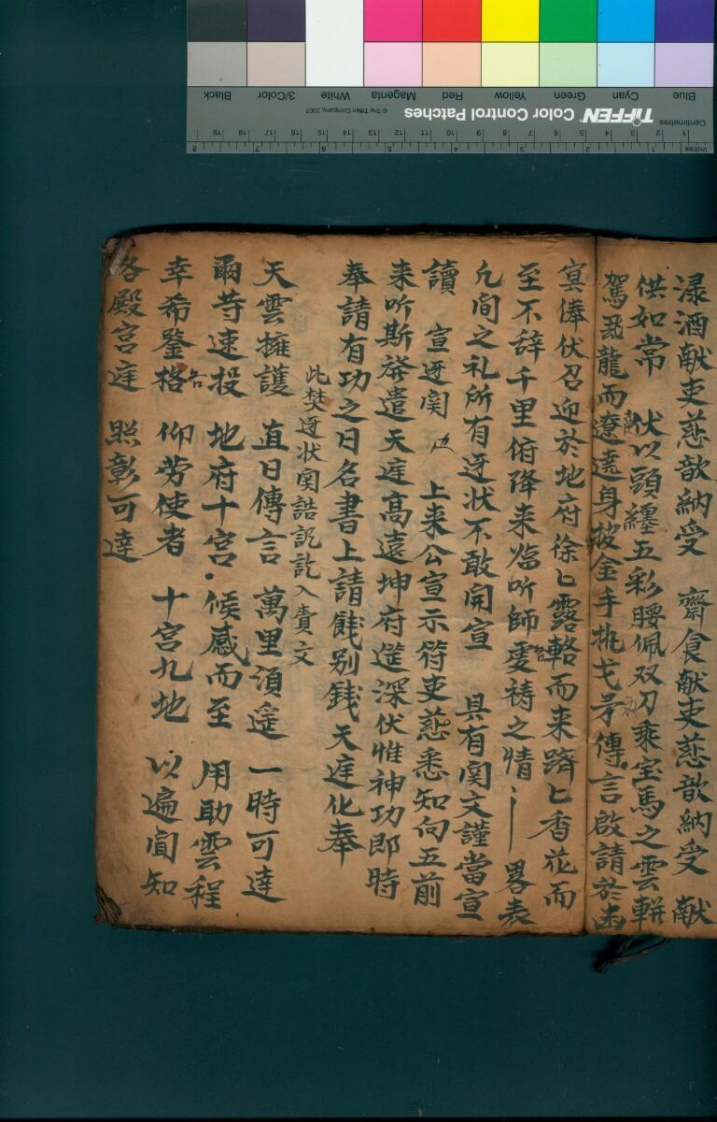 渌酒献吏慈歆納受　齋食献吏慈歆納受　献
供如常　伏以頭纏五彩腰佩双刀乘宝馬之雲軿
駕飛龍而遼遠身披金手挑戈矛傳言啟請於
㝠俸伏召迎於地府徐匕露輅而来躋匕香花而
至不辞千里俯降来臨听師䖍祷之情　畧表
凢间之礼所有迓状不敢開宣　具有関文謹當宣
讀　宣迓関　上来公宣示符吏慈悉知向五前
来听斯發遣天庭高遠坤府深伏惟神功即時
奉請有功之日名書上請餞别錢天庭化奉
此焚迓状関誥入賣文
天雲擁護　直日傳言　萬里湏遥　一時可達
爾䓁速投　地府十宮　候感而至　用助雲程
幸希登格　仰劳使者　十宮九地　以遍闻知
各殿宫庭　照彰可達
Blue Cyan Green Yellow Red Magenta White 3/Color Black
TIFFEN Color Control Patches © The Tiffen Company, 2007
Centimetres
Inches